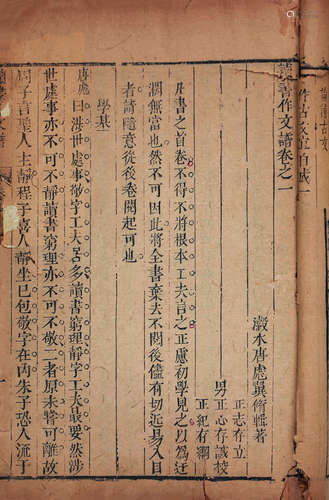 讀書作文譜卷之一
瀫水唐彪翼修輯著
正志存立
男正心存誠校
正紀存綱
凡書之首卷不得不將根本工夫言之正慮初學見之以為迂
濶無當也然不可因此將全書棄去不閱後儘有切近易入目
者請隨意從後卷閱起可也
學基
唐彪曰涉世處事敬字工夫居多讀書窮理靜字工夫最要然涉
世處事亦不可不靜讀書窮理亦不可不敬二者原未嘗可離故
周子言聖人主靜程子喜人靜坐已包敬字在內朱子恐人流于